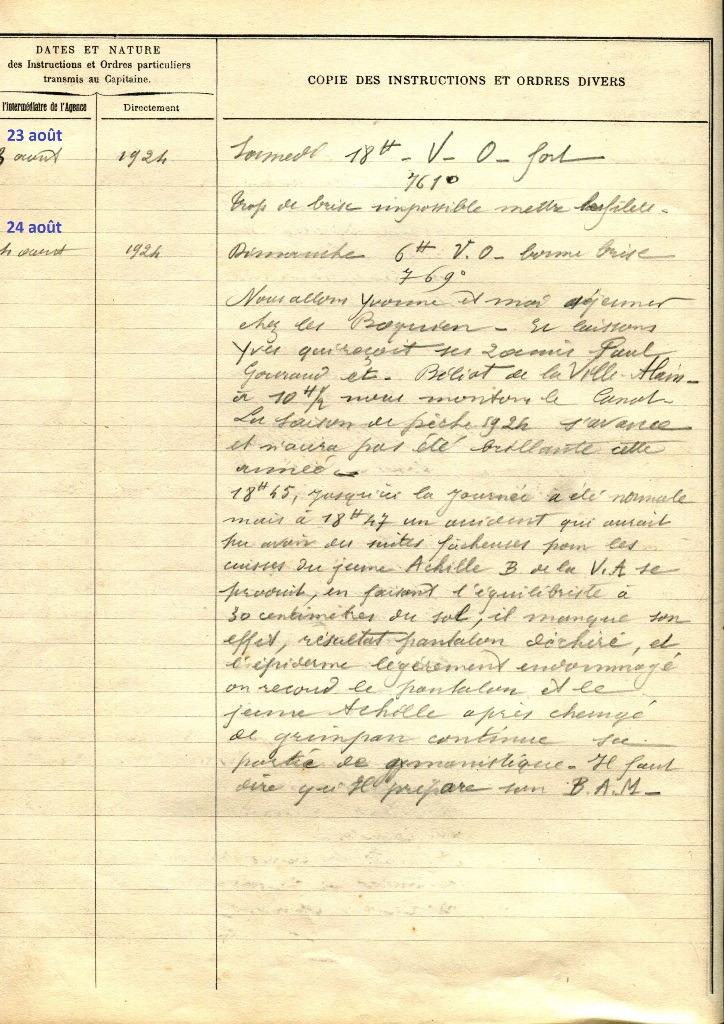 DATES ET NATURE
des Instructions et Ordres particuliers
transmis au Capitaine.
COPIE DES INSTRUCTIONS ET ORDRES DIVERS
l'Intermédiaire de l'Agence
Directement
23 août
août 1924 Samedi 18H - V - O - fort
761°
trop de brise impossible mettre les filets -
24 août
août 1924 Dimanche 6H V. O - bonne brise
769°
Nous allons Yvonne et moi déjeuner
chez les - Et laissons
Yves qui reçoit ses 2 amis Paul
Gouraud et - Boliat de la Ville Alain -
à 10H 1/2 nous montons le Canot -
La Saison de pêche 1924 s'avance
et n'aura pas été brillante cette
année -
18H45, jusqu'ici la journée a été normale
mais à 18H47 un accident qui aurait
pu avoir des suites fâcheuses pour les
cuisses du jeune Achille B de la V.A se
produit, en faisant l'équilibriste à
30 centimètres du sol, il manque son
effet, résultat pantalon déchiré, et
l'épiderme légèrement endommagé
on recoud le pantalon et le
jeune Achille après changé
de grimpan continue sa
partie de gymnastique - Il faut
dire qu'Il prépare son B.A.M -